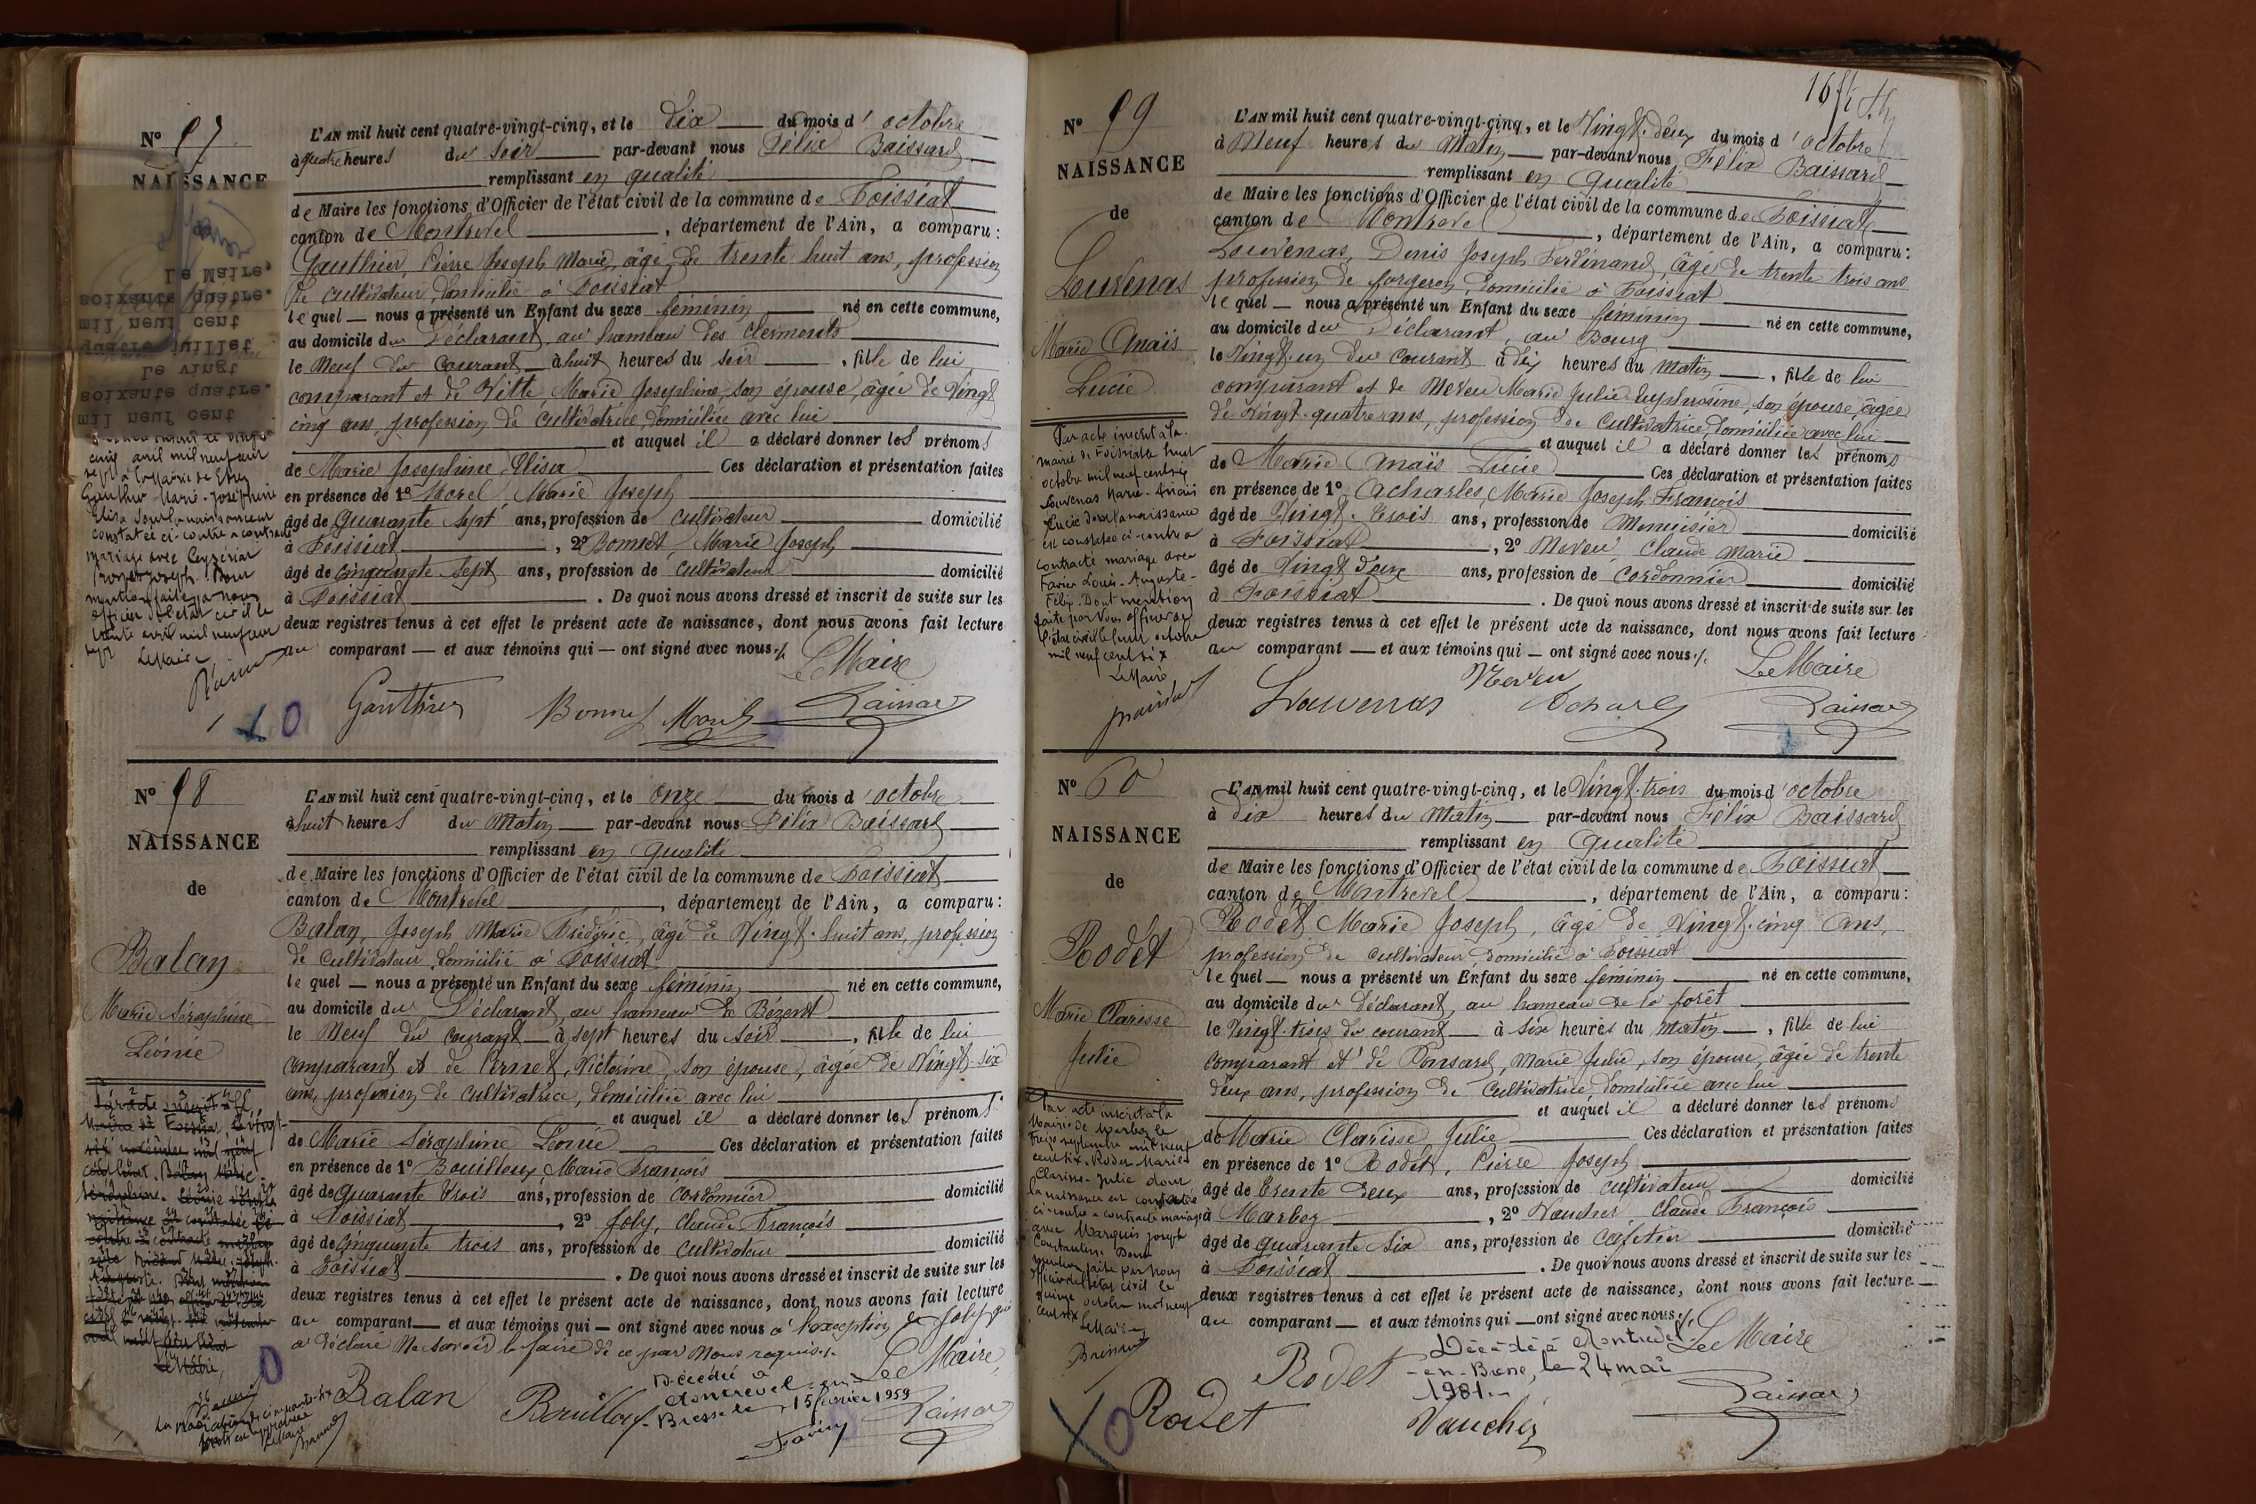 Nº 57
NAISSANCE
L'AN mil huit cent quatre-vingt-cinq, et le dix du mois d'octobre
à quatre heures du soir par-devant nous Félix Baissard
remplissant en qualité
de Maire les fonctions d'Officier de l'état civil de la commune de Foissiat
canton de Montrevel, département de l'Ain, a comparu:
Gauthier, Pierre Joseph Marie, âgé de trente huit ans, profession
de cultivateur, domicilié à Foissiat
lequel nous a présenté un Enfant du sexe féminin né en cette commune,
au domicile du Déclarant, au hameau des Clermonts
le Neuf du Courant à huit heures du soir, fille de lui
comparant et de Vitte, Marie Josephine, son épouse, âgée de Vingt
cinq ans, profession de cultivatrice, domiciliée avec lui
et auquel il a déclaré donner les prénoms
de Marie Josephine Elisa Ces déclaration et présentation faites
en présence de 1º Morel, Marie Joseph
âgé de Quarante Sept ans, profession de cultivateur domicilié
à Foissiat, 2º Bonnet, Marie Joseph
âgé de Cinquante Sept ans, profession de cultivateur domicilié
à Foissiat. De quoi nous avons dressé et inscrit de suite sur les
deux registres tenus à cet effet le présent acte de naissance, dont nous avons fait lecture
au comparant et aux témoins qui ont signé avec nous ./.
Le Maire
Gauthier Bonnet Morel
Le Maire,
soixante quatre.
mil neuf cent
quatre juillet
Le vingt
soixante quatre.
mil neuf cent
cinq avril mil neuf cent
sept à la Mairie de Etrez
Gauthier Marie-Joséphine
Elisa dont la naissance est
constatée ci-contre a contracté
mariage avec Ceyzeriat
Joseph. Dont
mention faite par nous
officier de l'état civil le
trente avril mil neuf cent
sept
Le Maire
Nº 58
NAISSANCE
de
Balan
Marie Séraphine
Léonie
L'AN mil huit cent quatre-vingt-cinq, et le onze du mois d'octobre
à huit heures du Matin par-devant nous Félix Baissard
remplissant en qualité
de Maire les fonctions d'Officier de l'état civil de la commune de Foissiat
canton de Montrevel, département de l'Ain, a comparu:
Balan, Joseph Marie Frédéric, âgé de Vingt-huit ans, profession
de cultivateur, domicilié à Foissiat
lequel nous a présenté un Enfant du sexe féminin né en cette commune,
au domicile du Déclarant, au hameau de Bézent
le Neuf du courant à sept heures du soir, fille de lui
comparant et de Pernet, Victorine, son épouse, âgée de Vingt-six
ans, profession de cultivatrice, domiciliée avec lui
et auquel il a déclaré donner les prénoms
de Marie Séraphine Léonie Ces déclaration et présentation faites
en présence de 1º Bouilloux, Marie François
âgé de Quarante trois ans, profession de Cordonnier domicilié
à Foissiat, 2º Joly, Claude François
âgé de cinquante trois ans, profession de cultivateur domicilié
à Foissiat. De quoi nous avons dressé et inscrit de suite sur les
deux registres tenus à cet effet le présent acte de naissance, dont nous avons fait lecture
au comparant et aux témoins qui ont signé avec nous à l'exception de Joly qui
a déclaré ne savoir le faire de ce par nous requis ./.
Le Maire
Décédée à
Montrevel-en-
Bresse le 15 février 1959
Balan Bouilloux
Nº 59
NAISSANCE
de
Louvenas
Marie Anaïs
Lucie
L'AN mil huit cent quatre-vingt-cinq, et le Vingt-deux du mois d'octobre
à Neuf heures du Matin par-devant nous Félix Baissard
remplissant en Qualité
de Maire les fonctions d'Officier de l'état civil de la commune de Foissiat
canton de Montrevel, département de l'Ain, a comparu:
Louvenas, Denis Joseph Ferdinand, âgé de trente trois ans
profession de forgeron, domicilié à Foissiat
lequel nous a présenté un Enfant du sexe féminin né en cette commune,
au domicile du Déclarant, au Bourg
le Vingt-un du courant à dix heures du Matin, fille de lui
comparant et de Neveu Marie Julie Euphrosine, son épouse, âgée
de Vingt-quatre ans, profession de cultivatrice, domiciliée avec lui
et auquel il a déclaré donner les prénoms
de Marie Anaïs Lucie Ces déclaration et présentation faites
en présence de 1º Acharles, Marie Joseph François
âgé de Vingt-trois ans, profession de Menuisier domicilié
à Foissiat, 2º Neveu, Claude Marie
âgé de Vingt deux ans, profession de Cordonnier domicilié
à Foissiat. De quoi nous avons dressé et inscrit de suite sur les
deux registres tenus à cet effet le présent acte de naissance, dont nous avons fait lecture
au comparant et aux témoins qui ont signé avec nous ./.
Le Maire
Louvenas Neveu
Par acte inscrit à la
mairie de Foissiat le huit
octobre mil neuf cent six
Louvenas Marie-Anaïs
Lucie dont la naissance
est constatée ci-contre a
contracté mariage avec
Favier Louis-Auguste-
Félix. Dont mention
faite par Nous officier de
l'état civil le huit octobre
mil neuf cent six
Le Maire
Nº 60
NAISSANCE
de
Rodet
Marie Clarisse
Julie
L'AN mil huit cent quatre-vingt-cinq, et le Vingt-trois du mois d'octobre
à dix heures du Matin par-devant nous Félix Baissard
remplissant en Qualité
de Maire les fonctions d'Officier de l'état civil de la commune de Foissiat
canton de Montrevel, département de l'Ain, a comparu:
Rodet Marie Joseph, âgé de Vingt-cinq ans,
profession de cultivateur, domicilié à Foissiat
lequel nous a présenté un Enfant du sexe féminin né en cette commune,
au domicile du Déclarant, au hameau de la forêt
le Vingt-trois du courant à six heures du matin, fille de lui
comparant et de Ponsard, Marie Julie, son épouse, âgée de trente
deux ans, profession de cultivatrice, domiciliée avec lui
et auquel il a déclaré donner les prénoms
de Marie Clarisse Julie Ces déclaration et présentation faites
en présence de 1º Rodet, Pierre Joseph
âgé de trente deux ans, profession de cultivateur domicilié
à Marboz, 2º Vaucher, Claude François
âgé de quarante six ans, profession de cafetier domicilié
à Foissiat. De quoi nous avons dressé et inscrit de suite sur les
deux registres tenus à cet effet le présent acte de naissance, dont nous avons fait lecture
au comparant et aux témoins qui ont signé avec nous ./.
Le Maire
Décédée à Montrevel
-en-Bresse, le 24 mai
1981
Rodet
Rodet Vaucher
Par acte inscrit à la
Mairie de Marboz le
treize septembre mil neuf
cent six. Rodet Marie
Clarisse-Julie dont
la naissance est constatée
ci-contre a contracté mariage
avec Marquis Joseph
Constantin. Dont
mention faite par nous
officier de l'état civil le
quinze octobre mil neuf
cent six
Le Maire